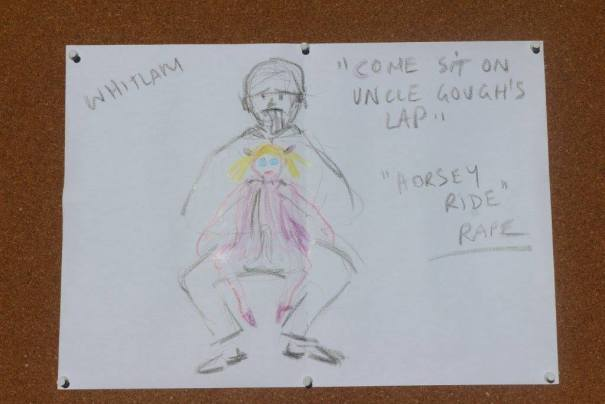 WHITLAM
"COME SIT ON
UNCLE GOUGH'S
LAP"
"HORSEY
RIDE"
RAPE